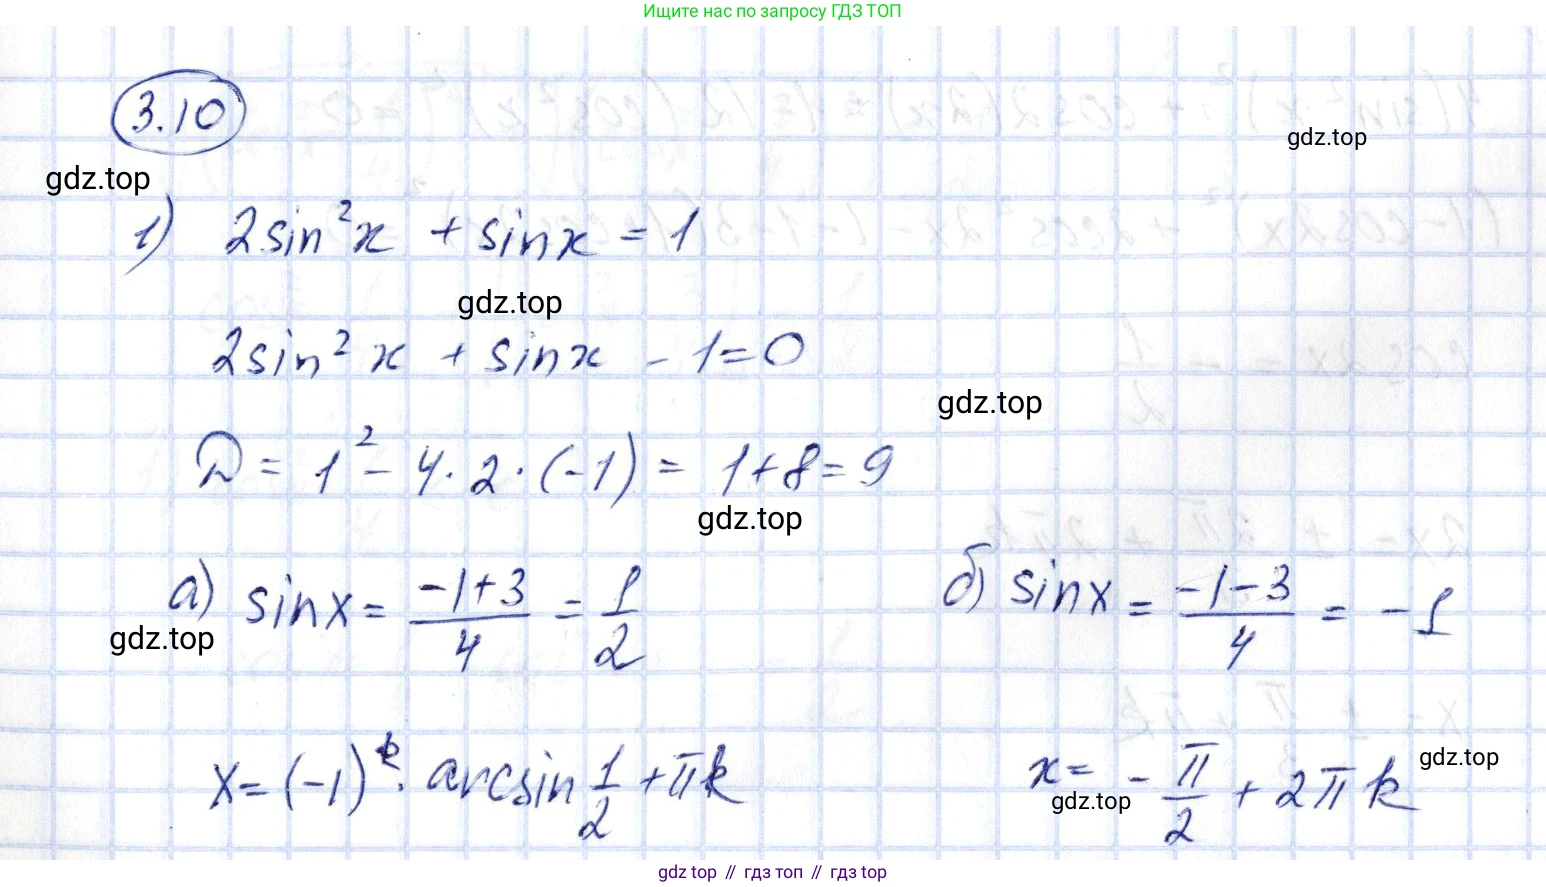 Ищите нас по запросу ГДЗ ТОП
3.10
gdz.top
gdz.top
1) 2sin²x + sinx = 1
gdz.top
2sin²x + sinx - 1 = 0
gdz.top
D = 1² - 4·2·(-1) = 1+8 = 9
gdz.top
а) sinx = (-1+3)/4 = 1/2
б) sinx = (-1-3)/4 = -1
gdz.top
x = (-1)^k · arcsin 1/2 + πk
x = -π/2 + 2πk
gdz.top
gdz.top
gdz top // гдз топ // гдз top